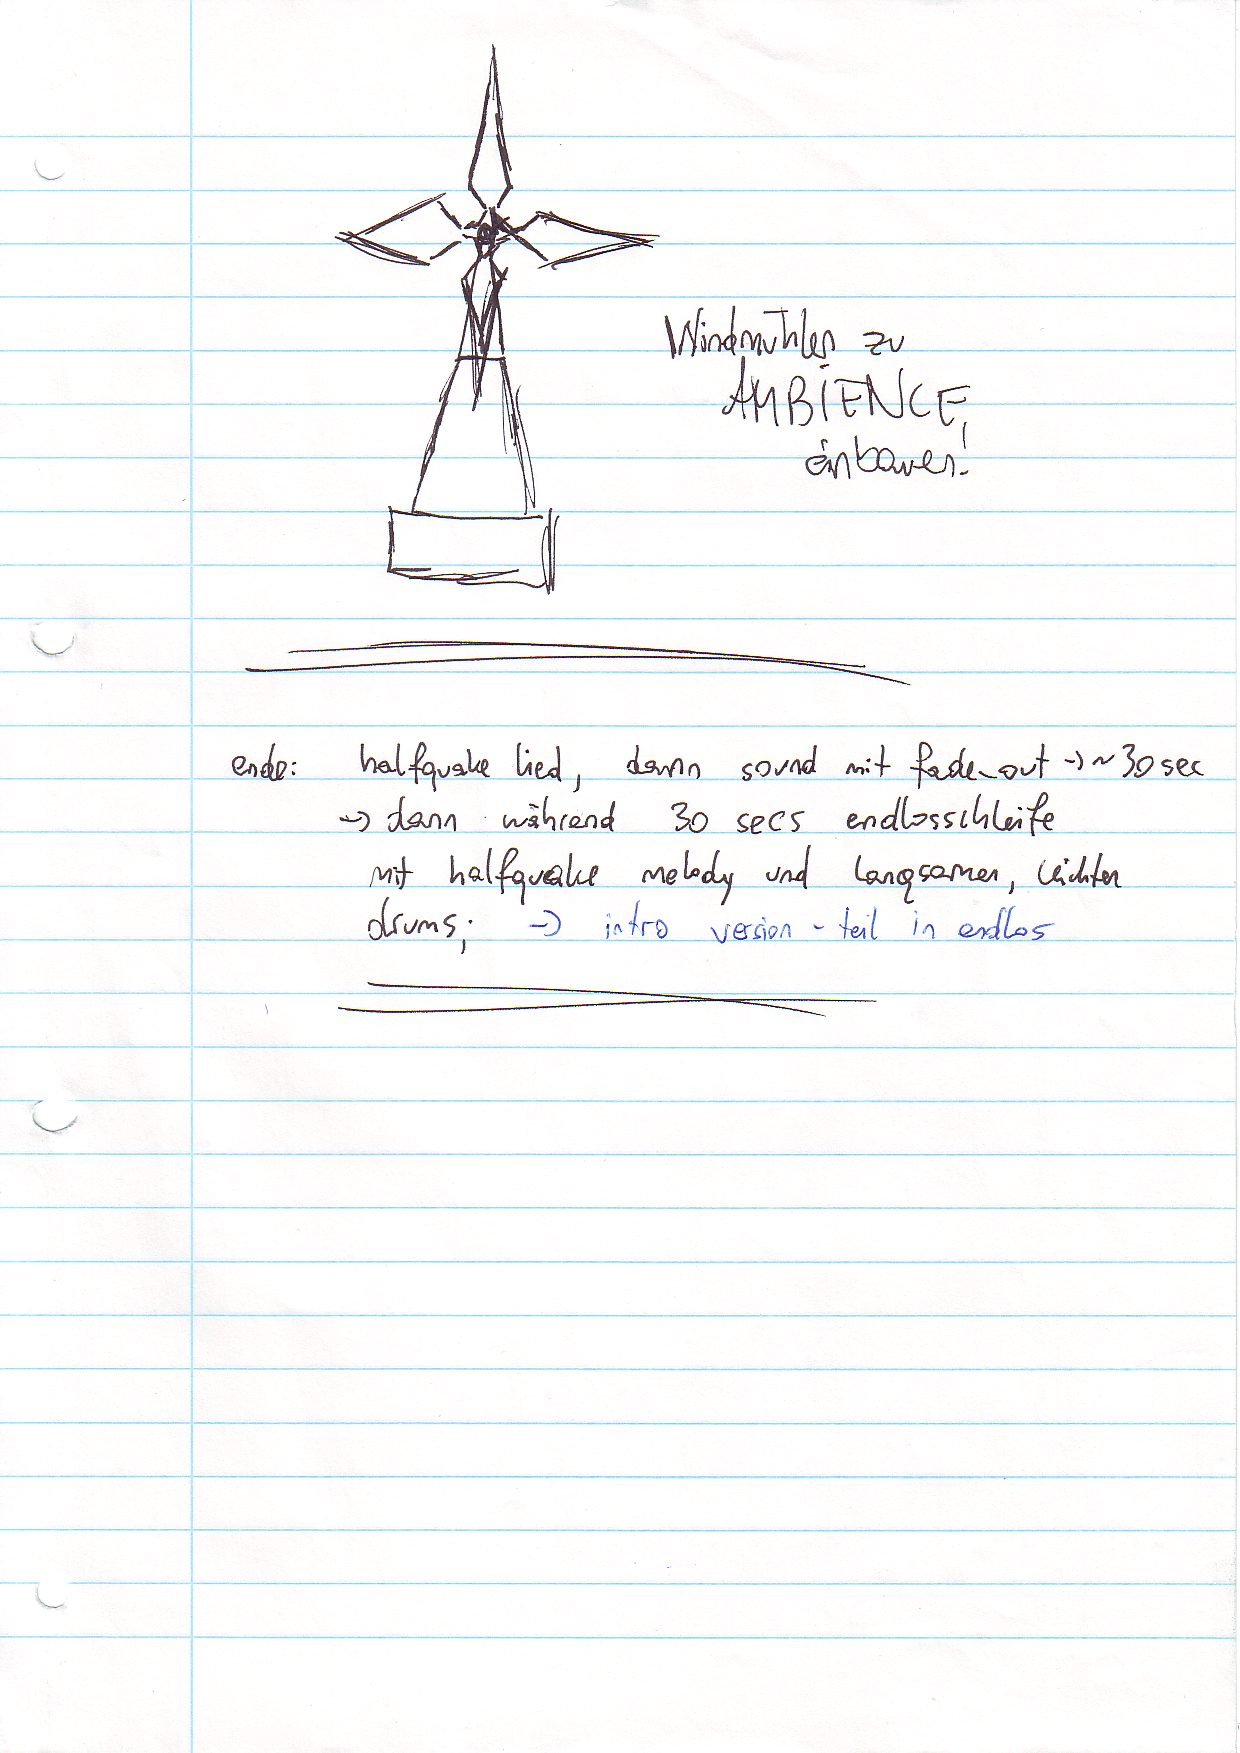 Windmühlen zu
AMBIENCE
einbauen!
ende: halfquake lied, dann sound mit fade-out -> ~30 sec
-> dann während 30 secs endlosschleife
mit halfquake melody und langsamen, leichten
drums; -> intro version - teil in endlos